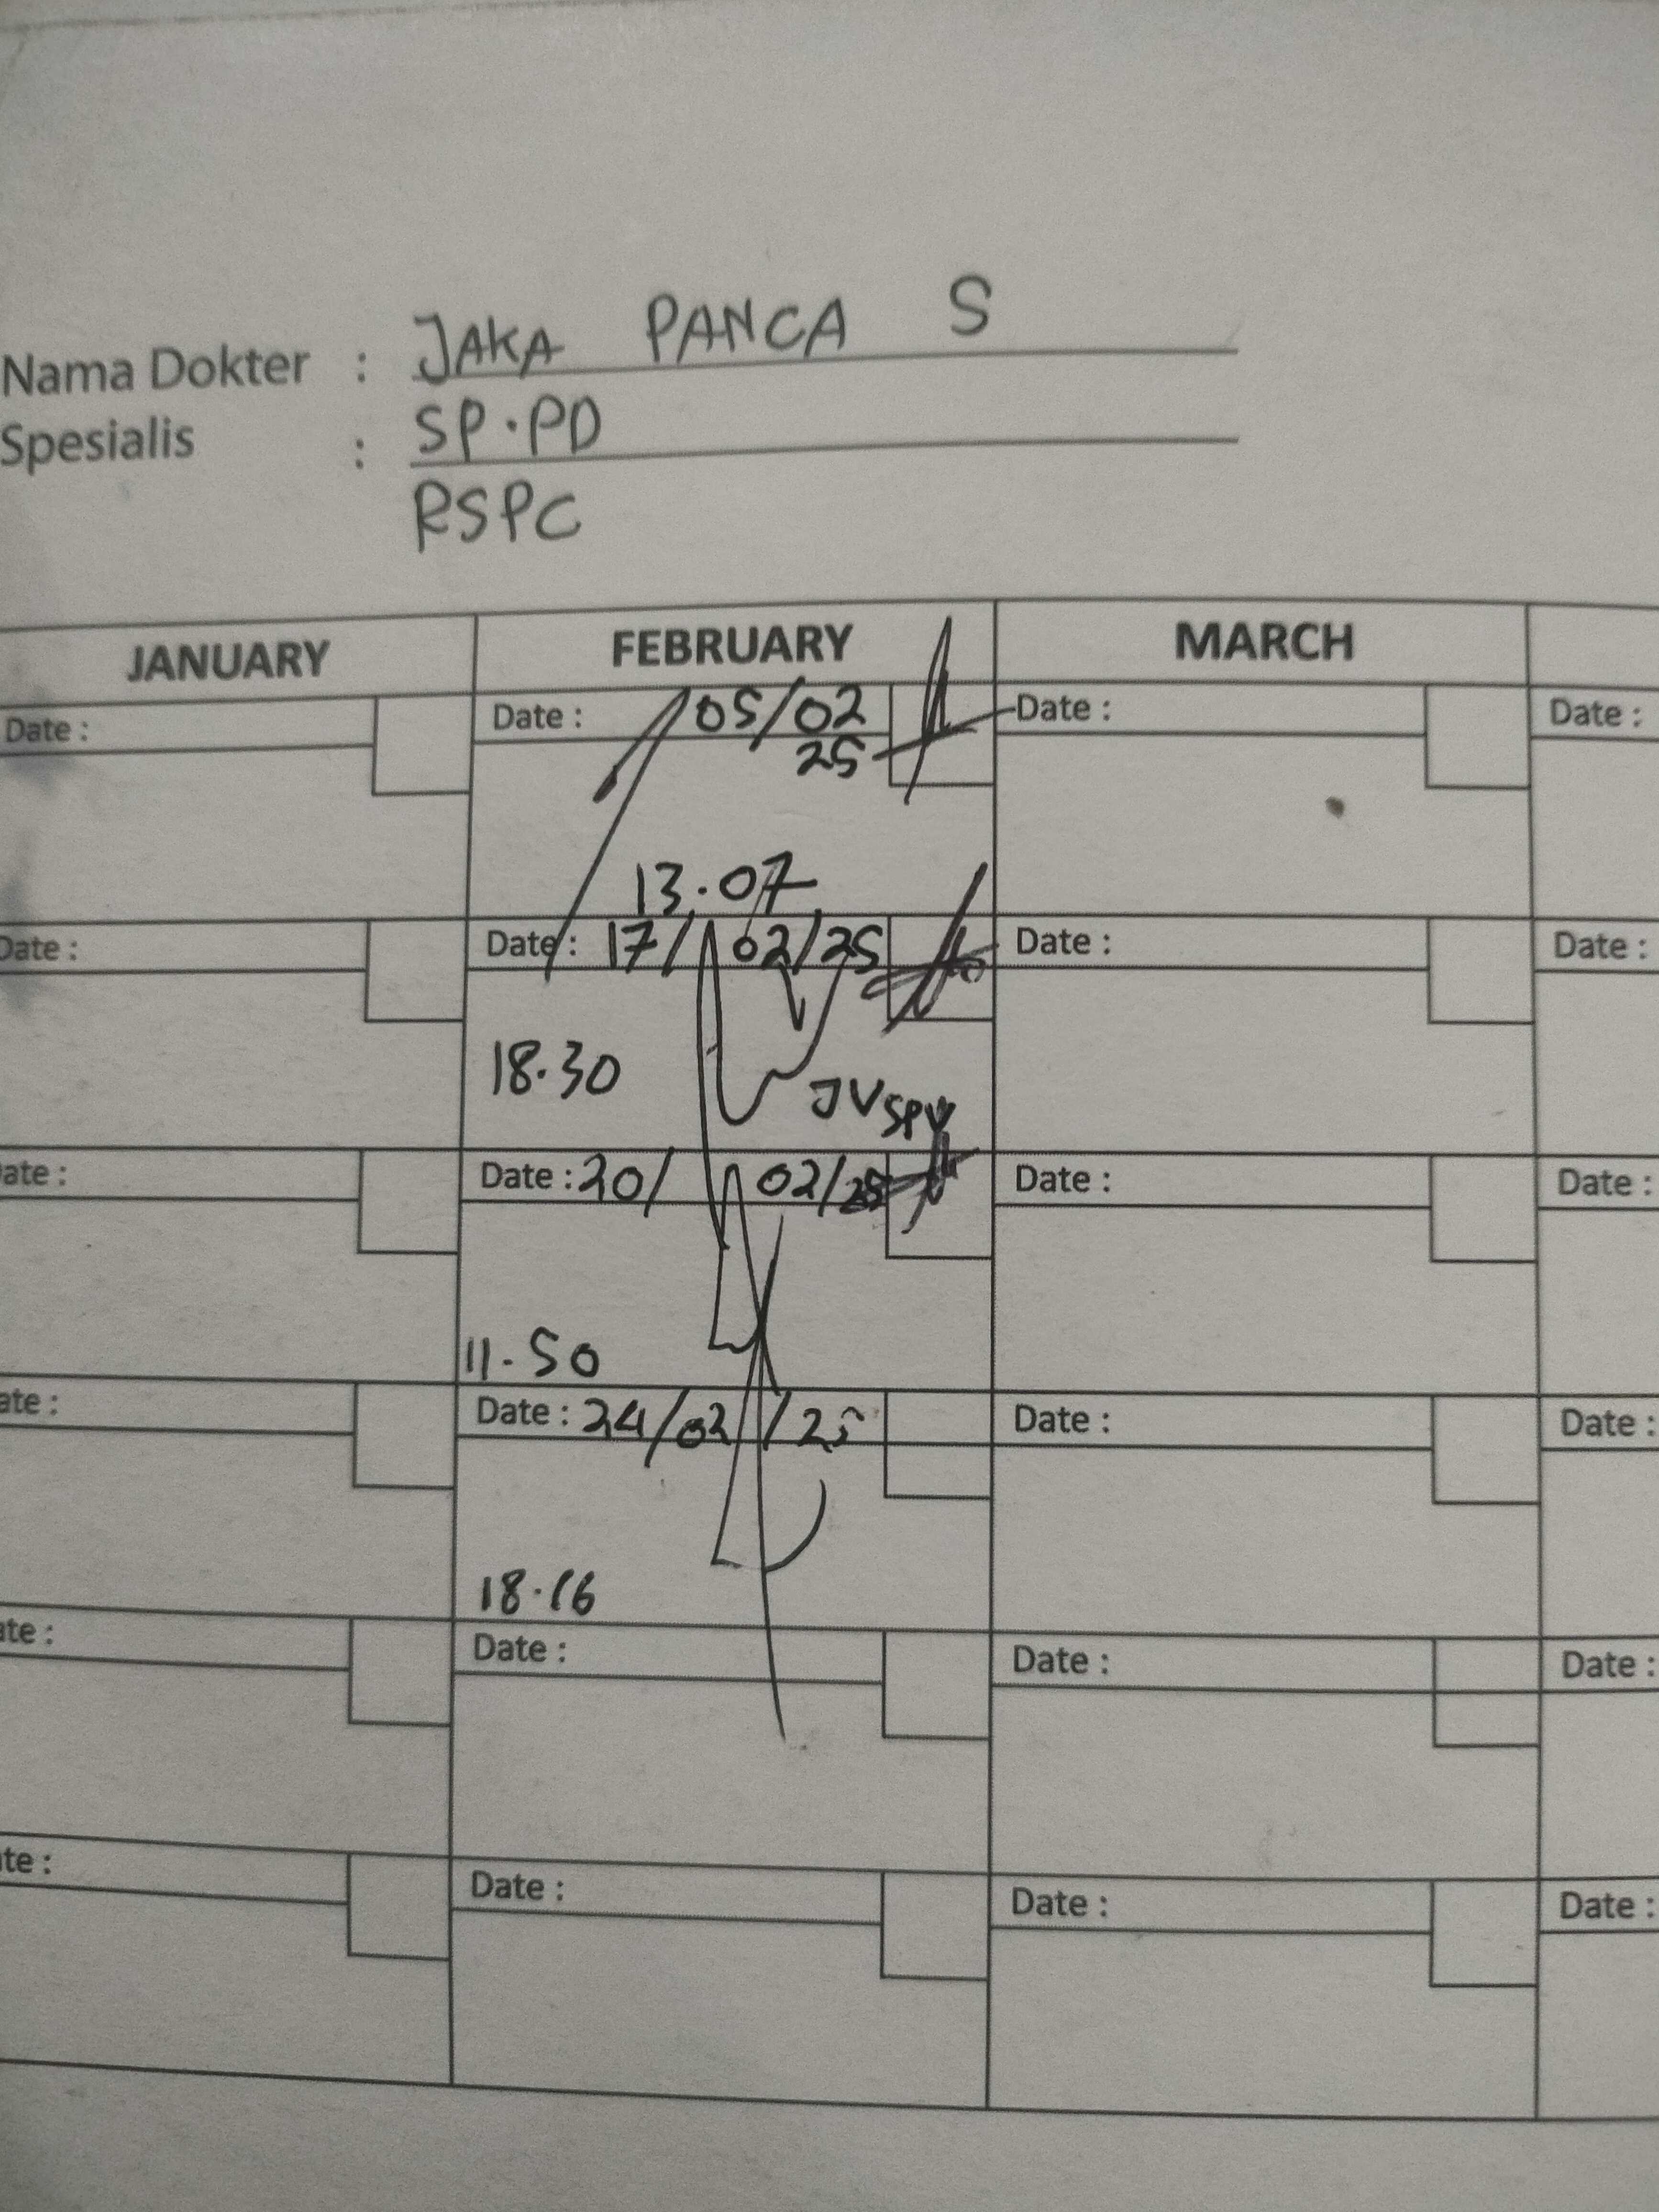 Nama Dokter : JAKA PANCA S
Spesialis : SP.PD
RSPC
JANUARY FEBRUARY MARCH
Date : Date : 05/02 Date : Date :
25
13.07
Date : Date : 17/02/25 Date : Date :
18.30
JV SPV
ate : Date : 20/02/25 Date : Date :
11.50
ate : Date : 24/02/25 Date : Date :
18.16
ate : Date : Date : Date :
te : Date : Date : Date :